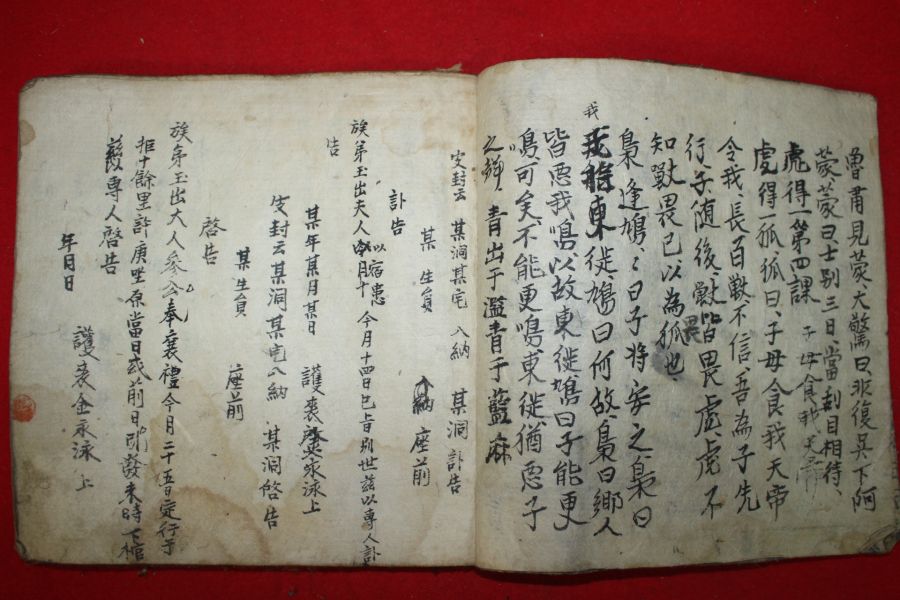 魯肅見蒙大驚曰非復吳下阿
蒙蒙曰士別三日當刮目相待
虎得一第四課 子母食我天帝
虎得一狐狐曰子母食我天帝
令我長百獸不信吾為子先
行子隨後獸皆畏虎虎不
知獸畏已以為狐也
梟逢鳩鳩曰子將安之梟曰
我
我將東徙鳩曰何故梟曰鄉人
皆惡我鳴以故東徙鳩曰子能更
鳴可矣不能更鳴東徙猶惡子
之聲 青出于濫青于藍麻
皮封云 某洞某宅 入納 某洞訃告
訃告
某 生員 座前
族弟玉出夫人以宿患今月十四日巳時別世茲以專人訃
告
某年某月某日 護喪 金永泳上
皮封云某洞某宅入納 某洞啓告
某生員 座前
啓告
族弟玉出大人 奉襄禮今月二十五日定行于
拒十餘里許庚坐原當日或前日 發來時下棺
茲專人啓告
年日日
護喪金永泳 上